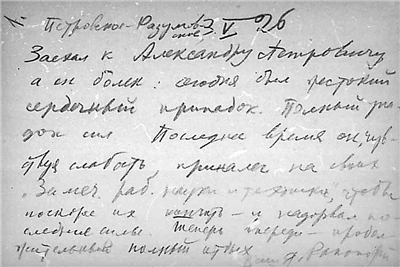 1. Петровское-Разумов-
ское 3. V 26
Заехал к Александру Петровичу
а он болен: сегодня был жестокий
сердечный припадок. Полный упа-
док сил Последнее время он, чув-
ствуя слабость, приналег на своих
"Замеч. раб. науки и техники", чтобы
поскорее их кончить — и надорвал по-
следние силы. Теперь впереди — продол-
жительный полный отдых